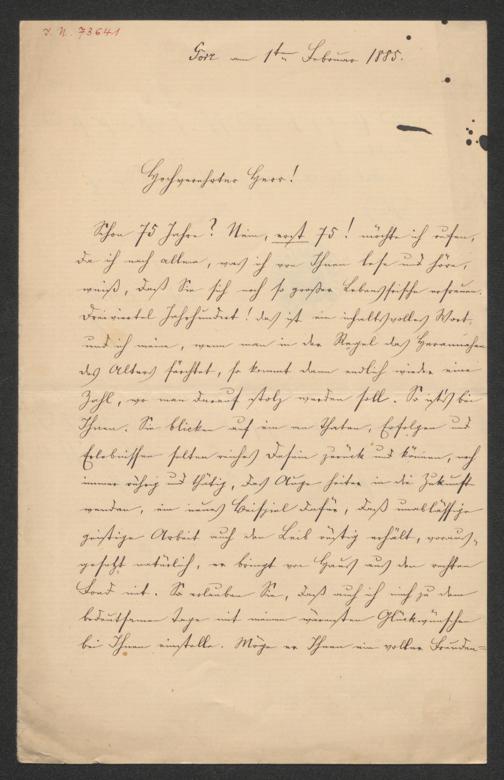 I. N. 73641
Görz am 1ten Februar 1885.
Hochverehrter Herr!
Schon 75 Jahre? Nein, erst 75! möchte ich rufen,
da ich nach allem, was ich von Ihnen lese und höre,
weiß, daß Sie sich noch so großer Lebensfrische erfreuen.
Dreiviertel Jahrhundert! das ist ein inhaltsvolles Wort,
und ich meine, wenn man in der Regel das Herannahen
des Alters fürchtet, so kommt dann endlich wieder eine
Zahl, wo man darauf stolz werden soll. So ist's bei
Ihnen. Sie blicken auf ein an Thaten, Erfolgen und
Erlebnissen selten reiches Dasein zurück und können, noch
immer rührig und thätig, das Auge heiter in die Zukunft
wenden, ein neues Beispiel dafür, daß unablässige
geistige Arbeit auch den Leib rüstig erhält, voraus-
gesetzt natürlich, er bringt von Haus aus den rechten
Fond mit. So erlauben Sie, daß auch ich mich zu dem
bedeutsamen Tage mit meinen wärmsten Glückwünschen
bei Ihnen einstelle. Möge er Ihnen ein voller Freuden-